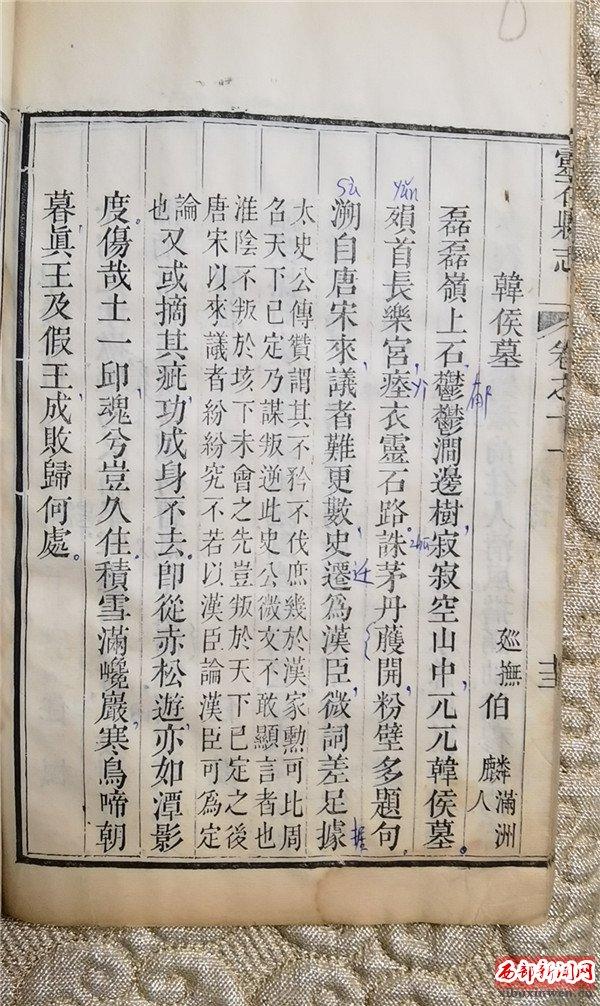 靈石縣志 卷之十一
韓侯墓 巡撫伯麟 滿洲人
磊磊嶺上石鬱鬱澗邊樹寂寂空山中元元韓侯墓。
首長樂宮瘞衣靈石路誅茅丹雘開粉壁多題句
溯自唐宋來議者難更數史遷爲漢臣微詞差足據
太史公傳贊謂其不矜不伐庶幾於漢家勳可比周
召天下已定乃謀叛逆此史公微文不敢顯言者也
淮陰不叛於垓下未會之先豈叛於天下已定之後
唐宋以來議者紛紛究不若以漢臣論漢臣可爲定
論也
又或摘其疵功成身不去即從赤松遊亦如潭影
度傷哉土一邱魂兮豈久住積雪滿巉巖寒鳥啼朝
暮眞王及假王成敗歸何處。
sù
yǎn
yì
迁
西部新闻网
xibuxinwen.cn